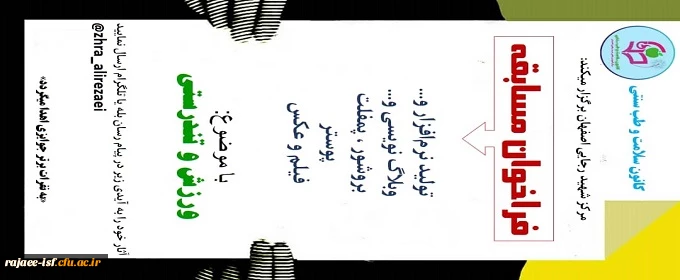 کانون سلامت و طب سنتی
مرکز شهید رجایی اصفهان برگزار میکند:
فراخوان مسابقه
تولید نرم‌افزار و...
وبلاگ نویسی و...
بروشور ، پمفلت
پوستر
فیلم و عکس
با موضوع:
ورزش و تندرستی
آثار خود را به آیدی زیر در پیام رسان بله یا تلگرام ارسال نمایید
@zhra_alirezaei
«به نفرات برتر جوایزی اهدا میگردد»
rajaee-isf.cfu.ac.ir